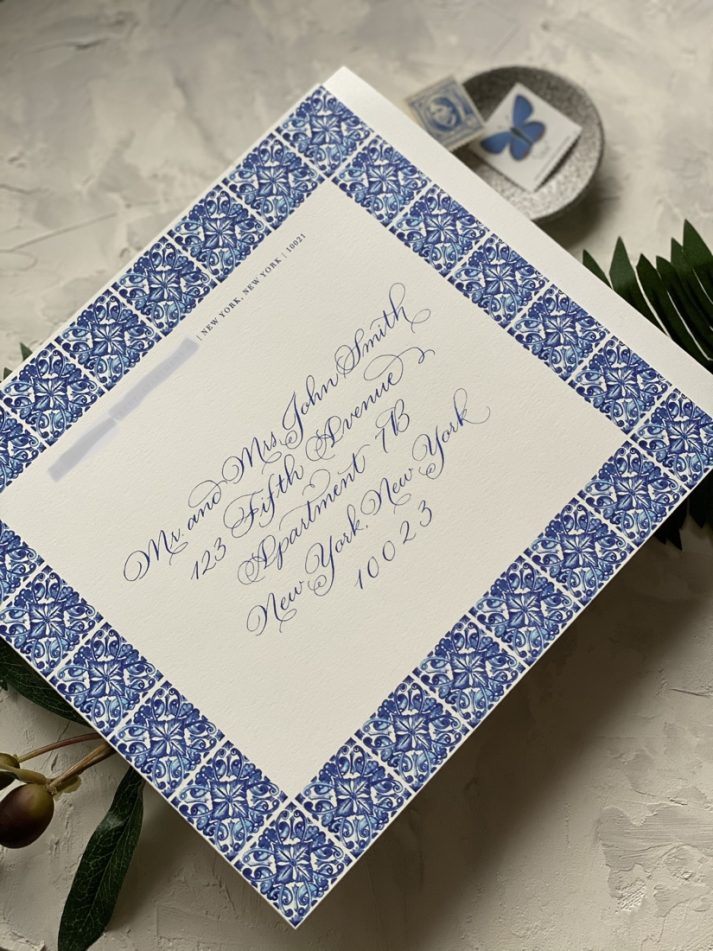 | NEW YORK, NEW YORK | 10021
Mr. and Mrs. John Smith
123 Fifth Avenue
Apartment 7B
New York, New York
10023